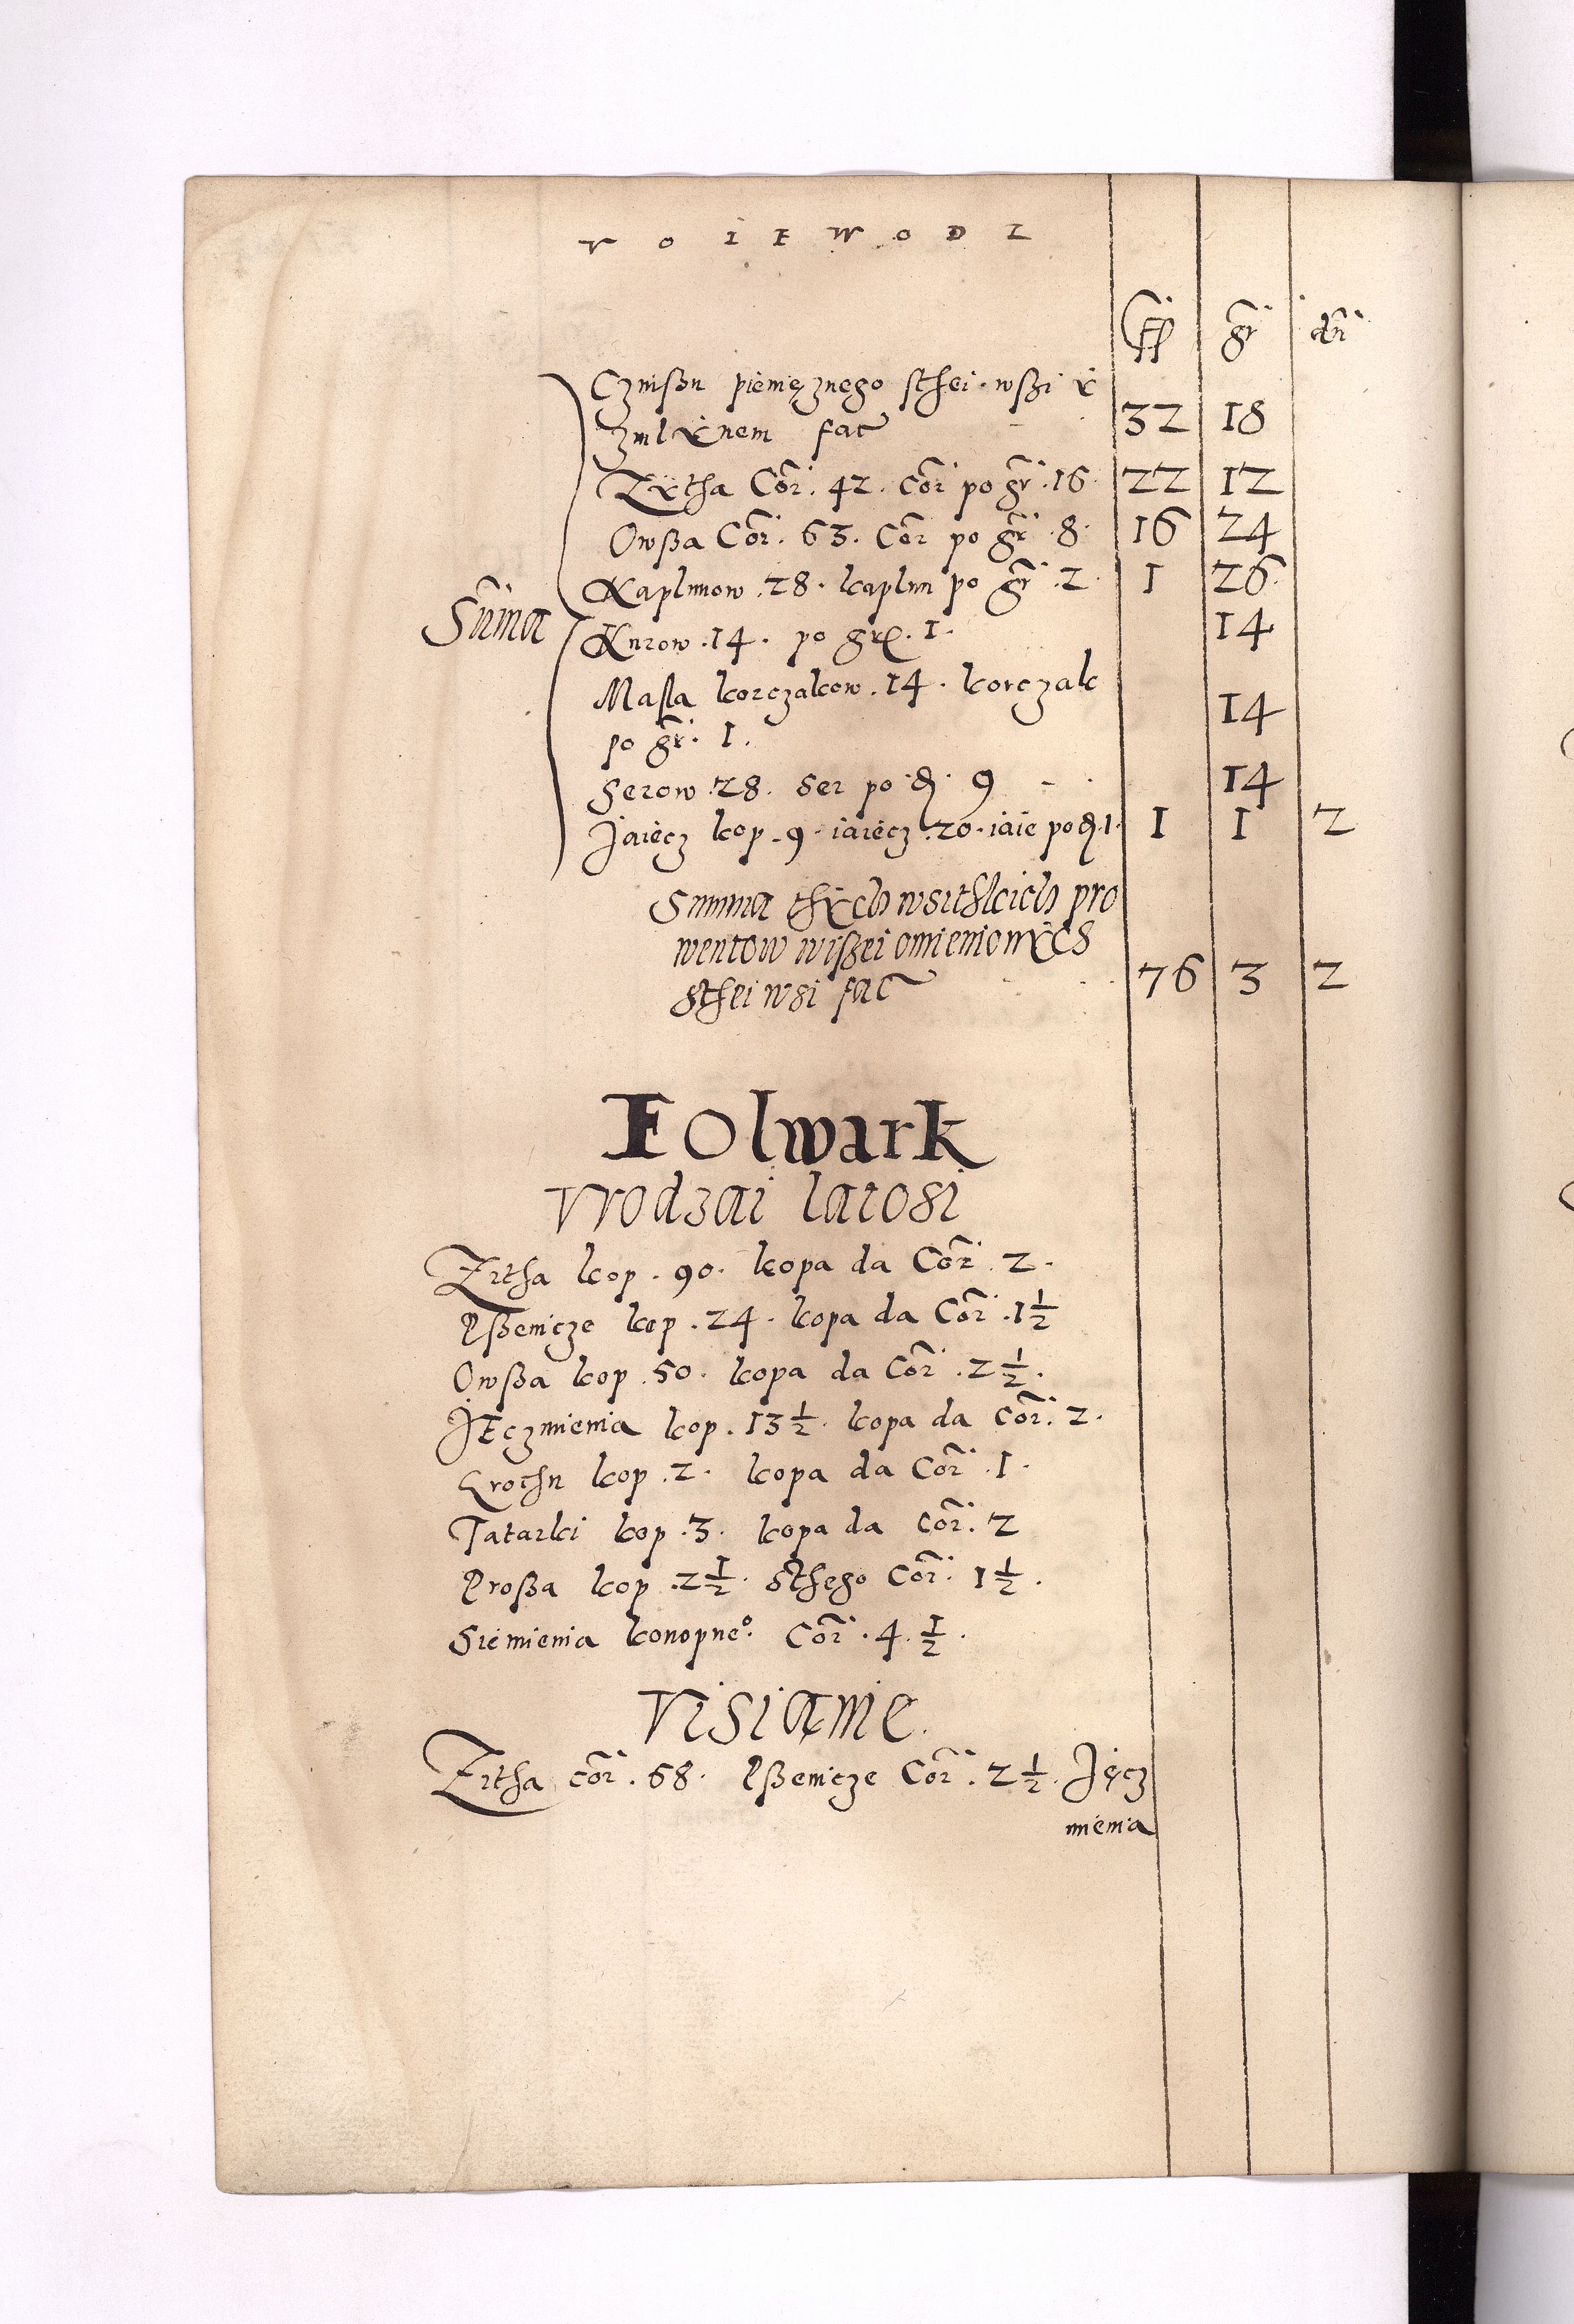 V O I E W O D Z
ff gr dn
Czinßu pieniężnego sthei wßi ÿ
zmlÿnem fac 32 18
Zÿtha Cor. 42. Cor po gr. 16. 22 12
Owßa Cor. 63. Cor po gr. 8. 16 24
Kaplunow .28. kaplun po gr. 2. 1 26.
Suma
Kurow .14. po gr. 1. 14
Masla korczakow .14. korczak 14
po gr. 1.
Serow .28. Ser po d. 9 14
Jaiecz kop .9. iaiecz .20. iaie po d. 1. 1 1 2
Summa thÿch wsithkich pro
wentow wißei omienionÿch
sthei wsi fac 76 3 2
Folwark
Vrodzai latosi
Zitha kop .90. kopa da Cor. 2.
Pßenicze kop .24. kopa da Cor .1½
Owßa kop .50. kopa da Cor .2½.
JEczmienia kop .13½. kopa da Cor. 2.
Grochu kop .2. kopa da Cor .1.
Tatarki kop .3. kopa da Cor. 2
Proßa kop .2½. sthego Cor. 1½.
Siemienia konopne°. Cor .4.½.
Visianie.
Zitha cor .68. Pßenicze Cor .2½. Jęcz
mienia